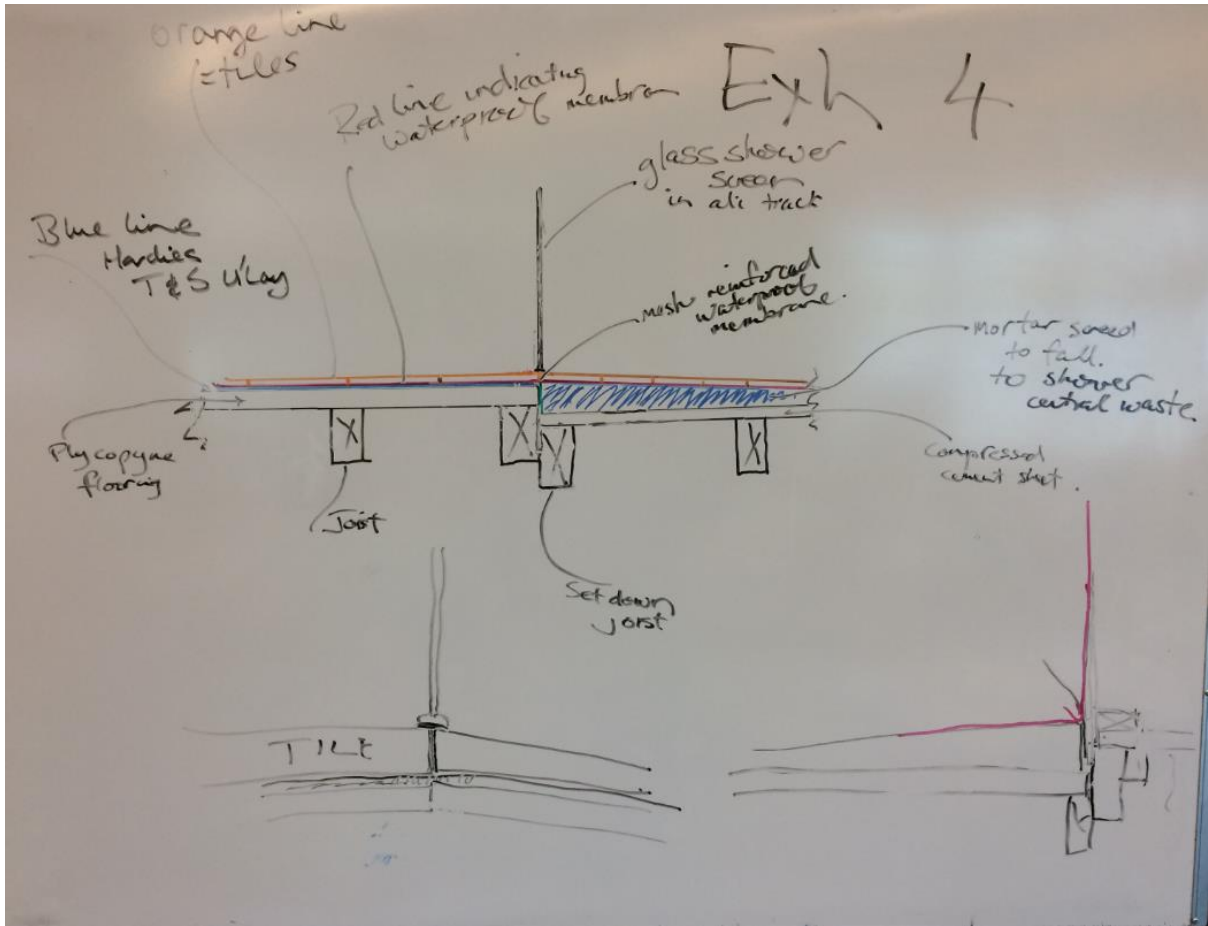 orange line
= tiles
Red line indicating
waterproof membran
Exh 4
glass shower
screen
in ali track
Blue line
Hardies
T & S U'Lay
mesh reinforced
waterproof
membrane.
mortar screed
to fall.
to shower
central waste
Plycopyne
flooring
Joist
Compressed
cement sheet.
Set down
joist
TILE